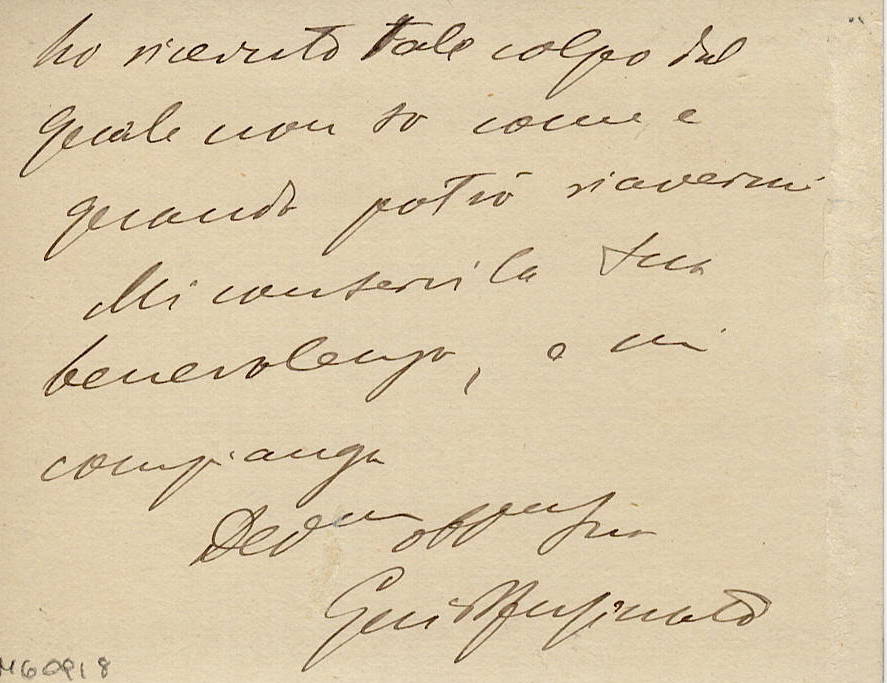 ho ricevuto tale colpo dal
quale non so come e
quando potrò riavermi
Mi conservi la sua
benevolenza, e mi
compianga
Dev
Guido Fusinato
M60918